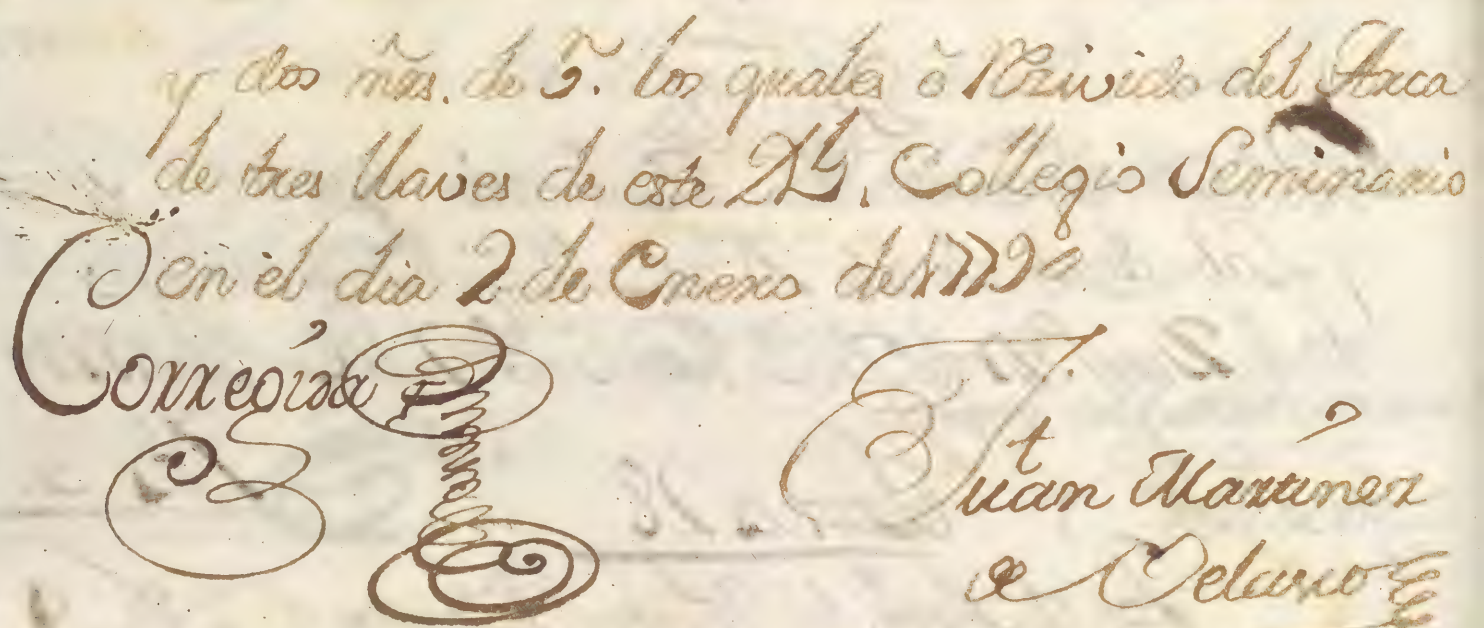 y dos mȓs. de Vn. los quales è Rezivido del Arca
de tres llaves de este Rl. Collegio Seminario
en el dia 2 de Enero de 1779
Correoida
Juan Martinez
de Velasco